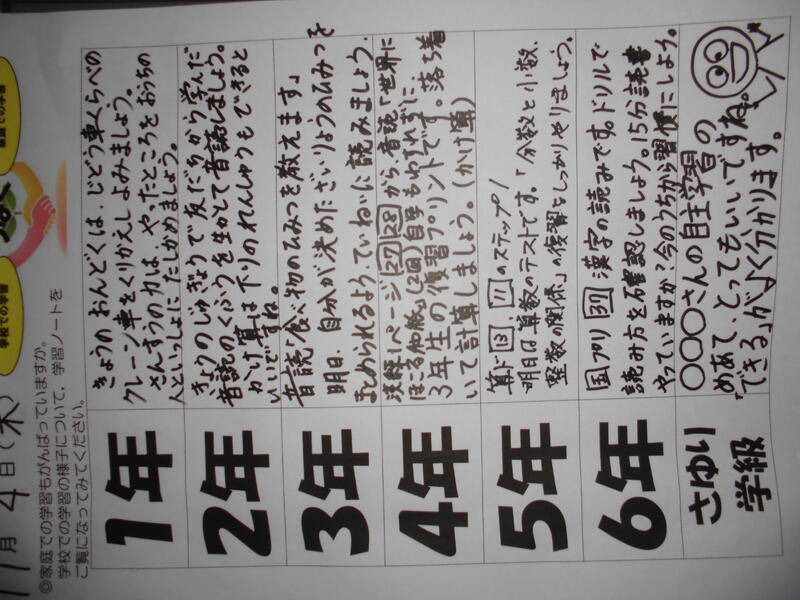 11月4日(木)
学校での学習
家庭での学習
◎家庭での学習もがんばっていますか。
学校での学習の様子について、学習ノートを
ご覧になってみてください。
1年
きょうの おんどくは、じどう車くらべの
クレーン車をくりかえしよみましょう。
さんすうの力は、やったところをおうちの
人といっしょに たしかめましょう。
2年
きょうのじゅぎょうで友だちから学んだ
音読のくふうを生かして音読しましょう。
かけ算は下りのれんしゅうもできると
いいですね。
3年
音読「食べ物のひみつを教えます」
明日、自分が決めたざいりょうのひみつを
まとめられるよう、ていねいに読みましょう。
4年
漢録1ページ 27 28 から 音読「世界に
ほこる和紙」(2回)自学もわすれずに。
3年生の復習プリントです。落ち着
いて計算しましょう。(かけ算)
5年
算ド 13 , 11 のステップ/
明日は算数のテストです。「分数と小数、
整数の関係」の復習をしっかりやりましょう。
6年
国プリ 37 漢字の読みです。ドリルで
読み方を確認しましょう。15分読書
やっていますか?今のうちから習慣にしよう。
さゆり
学級
○○○さんの自主学習の
めあて、とってもいいですね。
「できる」がよく分かります。